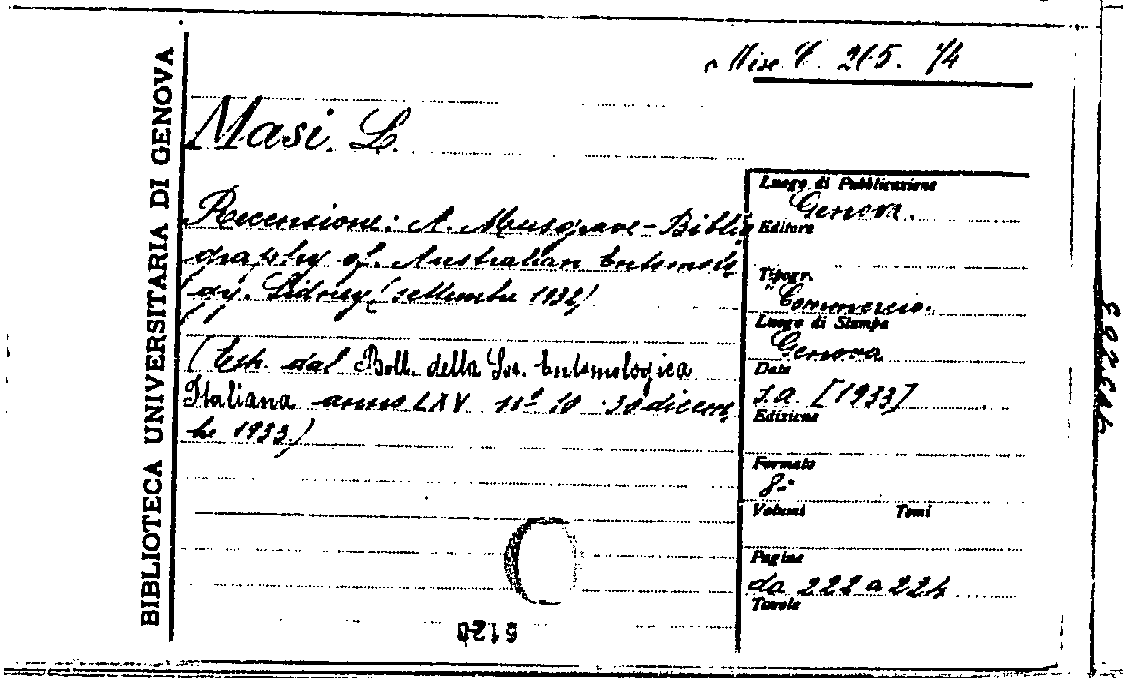 Misc. C. 265. 74
BIBLIOTECA UNIVERSITARIA DI GENOVA
Masi. L.
Recensione: A. Musgrave - Biblio
graphy of Australian Entomolo
gy. Sidney (settembre 1932)
(Estr. dal Boll. della Soc. Entomologica
Italiana anno LXV n.º 10 30 dicem
bre 1933)
Luogo di Pubblicazione
Genova.
Editore
Tipogr.
Commercio.
Luogo di Stampa
Genova
Data
s.a. [1933]
Edizione
Formato
8º
Volumi Tomi
Pagine
da 222 a 224
Tavole